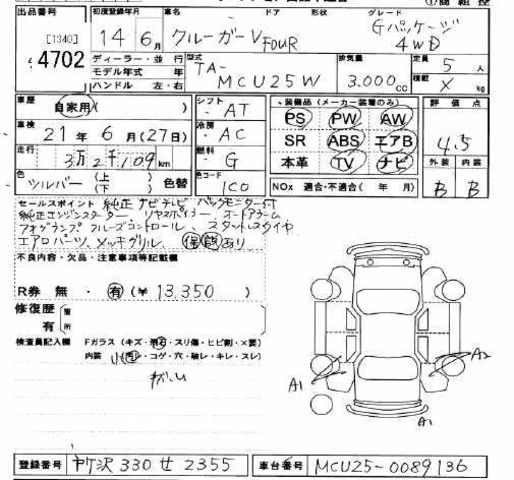 出品番号 初度登録年月 車名 ドア 形状 グレード
[1340] 4702 14年6月 クルーガーV FOUR Gパッケージ 4WD
ディーラー・並行 型式 排気量 定員 5人
モデル年式 年 TA-MCU25W 3.000cc 積載 X kg
ハンドル 左・右
車歴 自家用 シフト AT 装備品(メーカー装着のみ) 評価点
車検 21年6月(27日) 冷房 AC PS PW AW 4.5
走行 3万2千109km 燃料 G SR ABS エアB 外装 内装
色 シルバー (上)(下) 色替 色コード 1C0 本革 TV ナビ B B
NOx 適合・不適合(年 月)
セールスポイント 純正ナビテレビ バックモニター付
純正エンジンスターター、リヤスポイラー オートアラーム
フォグランプ クルーズコントロール、スタットレスタイヤ
エアロパーツ、メッキグリル、保説あり
不良内容・欠品・注意事項等記載欄
R券 無・有(¥ 13.350)
修復歴 有 箇所
検査員記入欄 Fガラス(キズ・飛石・スリ傷・ヒビ割・×要)
内装 ・コゲ・穴・破レ・キレ・スレ)
A1 A2
A1
登録番号 所沢 330 せ 2355 車台番号 MCU25-0089136